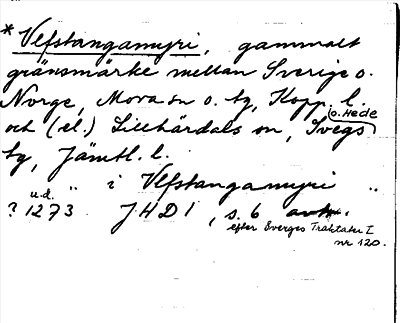 * Vefstangamyri, gammalt
gränsmärke mellan Sverige o.
Norge, Mora sn o. tg, Kopp. l.
och (el.) Lillhärdals sn, Svegs
o. Hede
tg, Jämtl. l.
u.d. " i Vefstangamyri "
? 1273. JHD I, s. 6
efter Sverges Traktater I
nr 120.